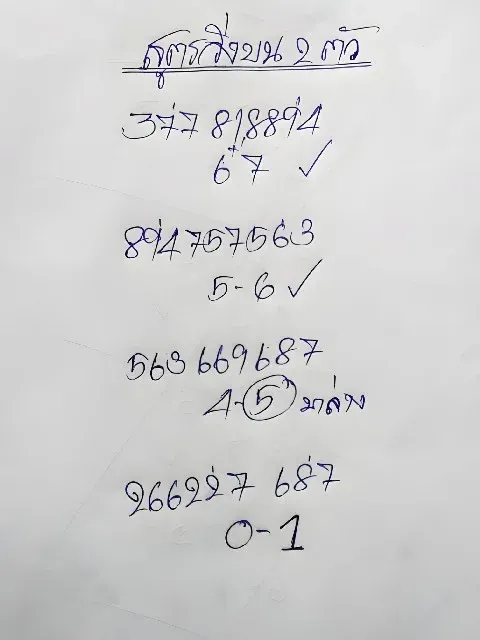 สูตรวิ่งบน 2 ตัว
377 818894
6+7 ✓
894757563
5-6 ✓
563 669687
4-5 มาล่าง
266227 687
0-1